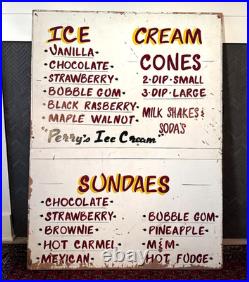 ICE CREAM
·VANILLA·
·CHOCOLATE·
·STRAWBERRY·
·BOBBLE GUM·
·BLACK RASBERRY·
·MAPLE WALNUT·
"Perry's Ice Cream"
CONES
2·DIP·SMALL
3·DIP·LARGE
MILK SHAKES &
SODA'S
SUNDAES
·CHOCOLATE·
·STRAWBERRY·
·BROWNIE·
·HOT CARMEL·
·MEXICAN·
·BUBBLE GUM·
·PINEAPPLE·
·M&M·
·HOT FUDGE·